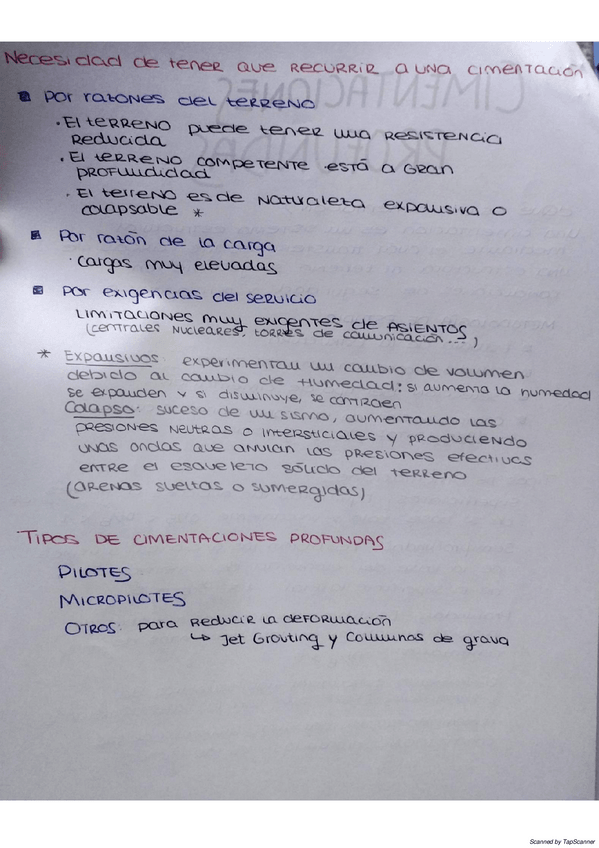 Necesidad de tener que recurrir a una cimentación
Por razones del terreno
· El terreno puede tener una resistencia
reducida
· El terreno competente está a gran
profundidad
· El terreno es de naturaleza expansiva o
colapsable *
Por razón de la carga
· Cargas muy elevadas
Por exigencias del servicio
Limitaciones muy exigentes de asientos
(centrales nucleares, torres de comunicación...)
* Expansivos: experimentan un cambio de volumen
debido al cambio de humedad: si aumenta la humedad
se expanden y si disminuye, se contraen
Colapso: suceso de un sismo, aumentando las
presiones neutras o intersticiales y produciendo
unas ondas que anulan las presiones efectivas
entre el esqueleto sólido del terreno
(arenas sueltas o sumergidas)
Tipos de cimentaciones profundas
Pilotes
Micropilotes
Otros: para reducir la deformación
↳ Jet Grouting y columnas de grava
Scanned by TapScanner